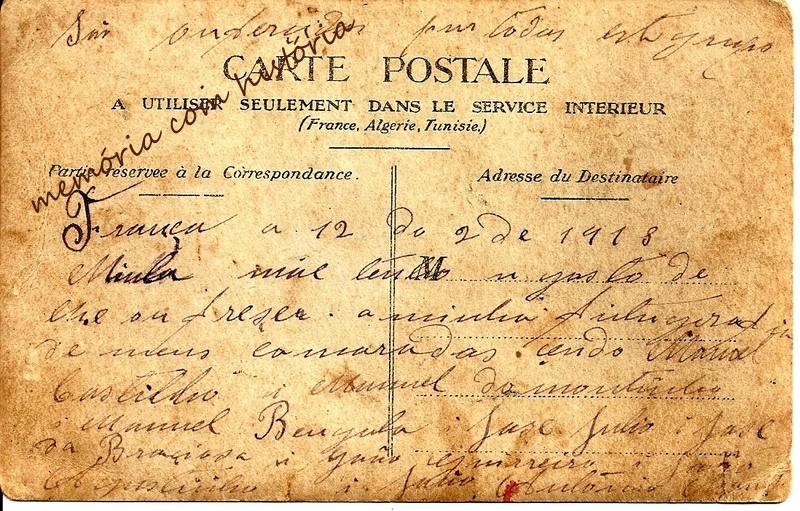 por todos este grupo
CARTE POSTALE
A UTILISER SEULEMENT DANS LE SERVICE INTERIEUR
(France, Algerie, Tunisie.)
memória com história
Partie reservee à la Correspondance.
Adresse du Destinataire
França a 12 do 2 de 1918
Minha mãe tendo o gosto de
lhe ou freser a minha
de meus camaradas sendo Manuel
Castilho i Manuel da
i Manuel Bengala i Jose Julio i Jose
da Graciosa i João Gimarreiro i João
i Julio Antonio